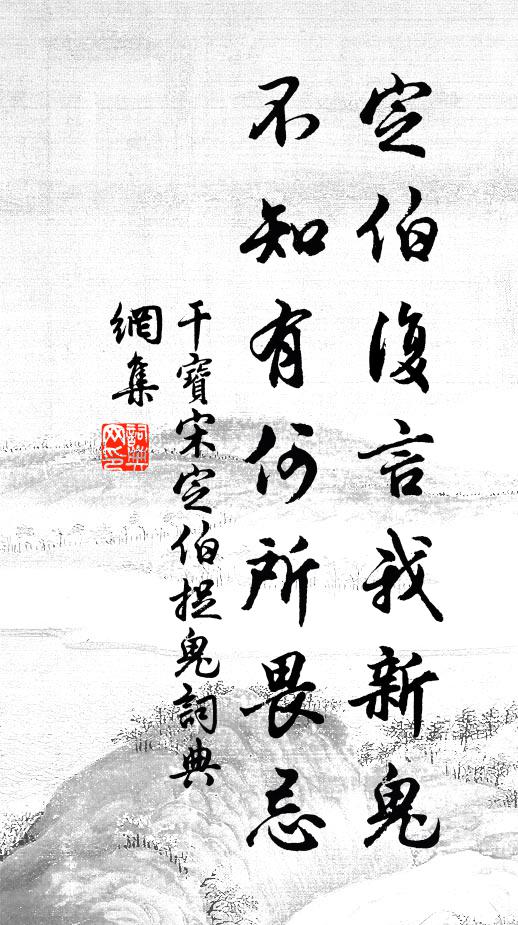 定伯復言我新鬼
不知有何所畏忌
干寶宋定伯捉鬼詞典
網集